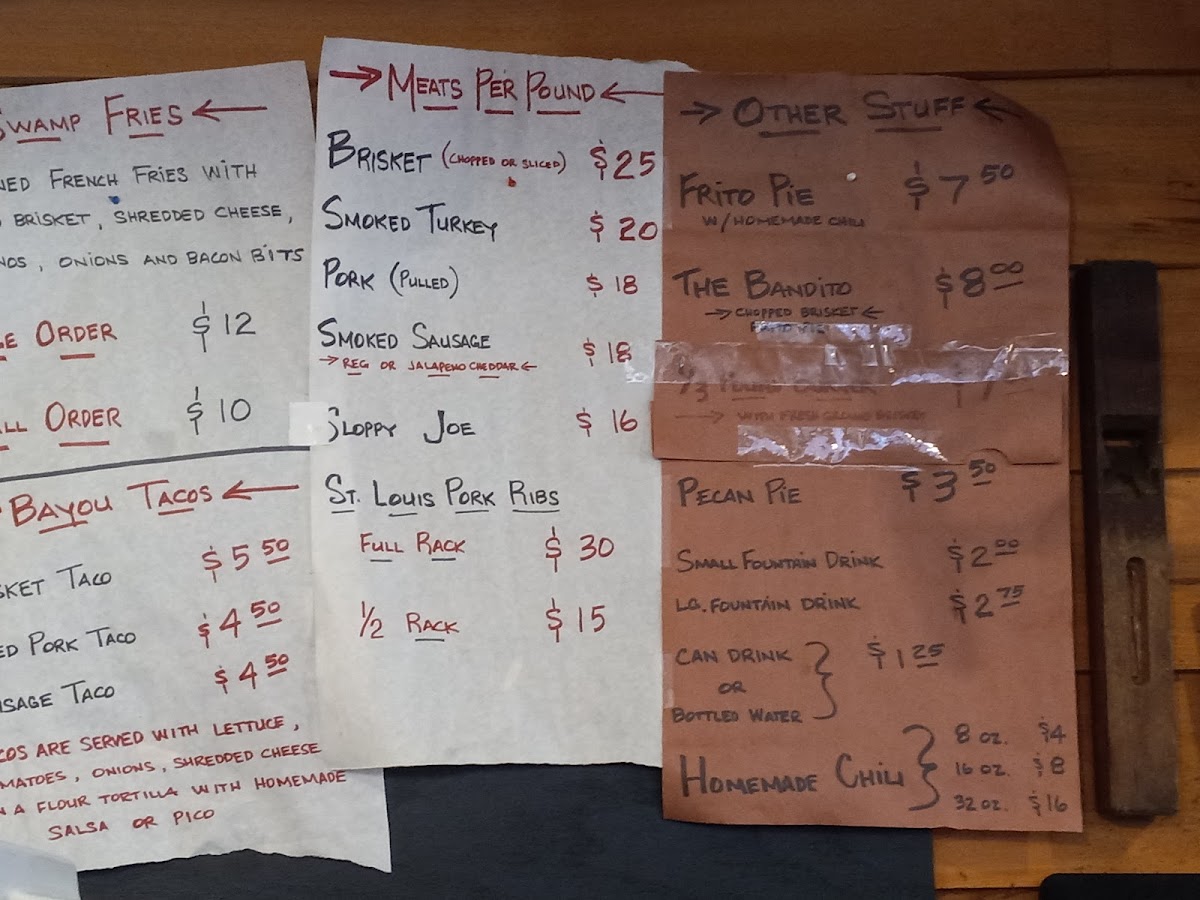 SWAMP FRIES ←
FRENCH FRIES WITH
BRISKET, SHREDDED CHEESE,
ONIONS AND BACON BITS
ORDER $12
ORDER $10
BAYOU TACOS ←
TACO $5 50
PORK TACO $4 50
TACO $4 50
ARE SERVED WITH LETTUCE,
ONIONS, SHREDDED CHEESE
A FLOUR TORTILLA WITH HOMEMADE
SALSA OR PICO
→ MEATS PER POUND ←
BRISKET (CHOPPED OR SLICED) $25
SMOKED TURKEY $20
PORK (PULLED) $18
SMOKED SAUSAGE $18
→ REG OR JALAPENO CHEDDAR ←
SLOPPY JOE $16
ST. LOUIS PORK RIBS
FULL RACK $30
1/2 RACK $15
→ OTHER STUFF ←
FRITO PIE $7 50
W/HOMEMADE CHILI
THE BANDITO $8 00
→ CHOPPED BRISKET ←
1/3 POUND
→ WITH FRESH GROUND BRISKET
PECAN PIE $3 50
SMALL FOUNTAIN DRINK $2 00
LG. FOUNTAIN DRINK $2 75
CAN DRINK $1 25
OR
BOTTLED WATER
HOMEMADE CHILI
8 OZ. $4
16 OZ. $8
32 OZ. $16